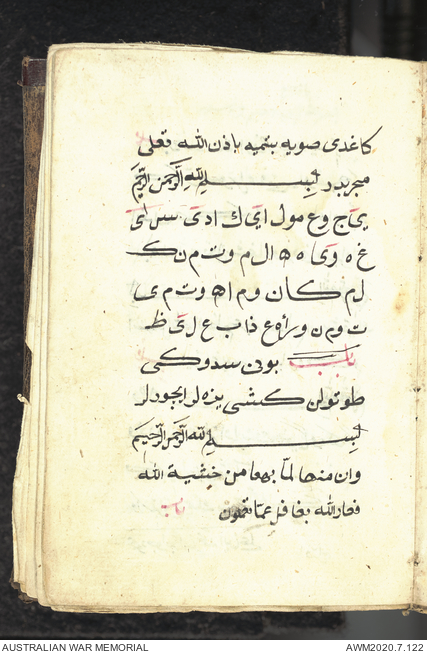 كاغدى صويه بتميه باذن الله تعلى
مجربدر بسم الله الرحمن الرحيم
ى ج و ع م و ل ا ى ك ا د ى س ر ا ى
غ ه و ى ا ه ه ا ل م و ت م ن ك
ل م ك ا ن و م ا ه و ت م ى
ت و م ن و ر ا ه ع ذ ا ب ع ل ى ظ
باب بونى سدوكى
طوتولن كشى يزه لر ايجودلر
بسم الله الرحمن الرحيم
وان منها لما يهبط من خشية الله
الله بغافل عما
باب
AUSTRALIAN WAR MEMORIAL
AWM2020.7.122